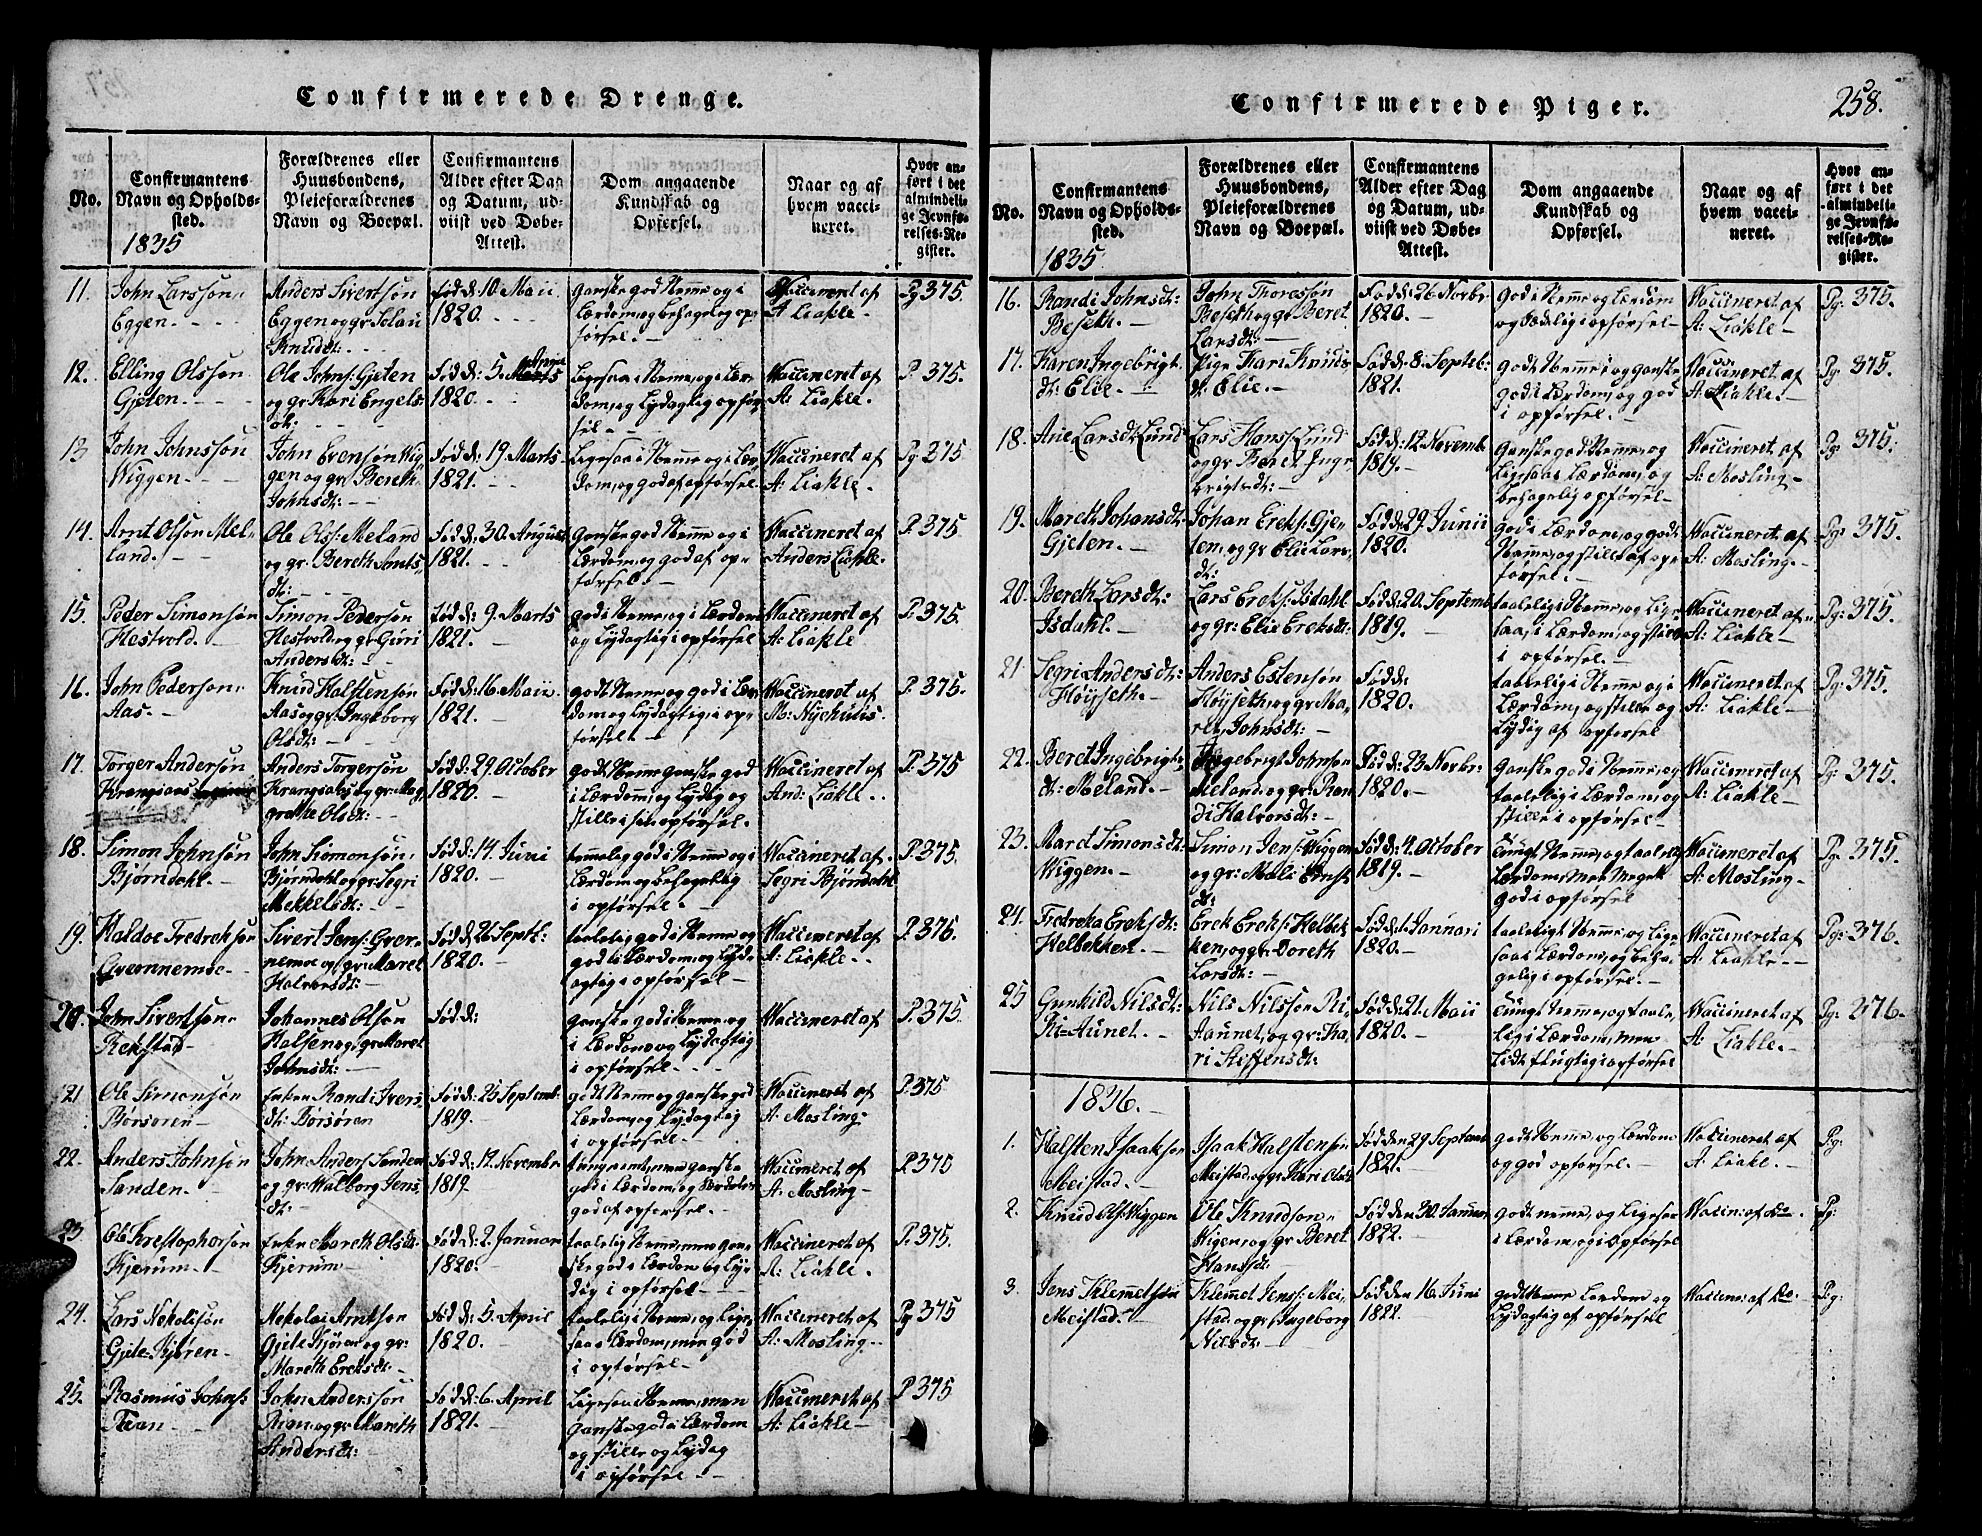 Confirmerede Drenge.
No.
Confirmantens Navn og Opholds-sted.
Forældrenes eller Huusbondens, Pleieforældrenes Navn og Boepæl.
Confirmantens Alder efter Dag og Datum, ud-viist ved Døbe-Attest.
Dom angaaende Kundskab og Opførsel.
Naar og af hvem vacci-neret.
Hvor an-ført i det almindeli-ge Jevnfø-relses-Re-gister.
1835
11. John Larssön, Eggen.
Anders Sivertsön Eggen og gr
Knudsdt:
född: 10. Maii 1820.
Ganske god Nemme og i Lærdom, og behagelig opførsel.
Vaccineret af A Liakle.
Pg 375.
12. Elling Olssön Gjeten.
Ole Johns: Gjeten og gr Kari Engels dt:
Född: 5. 1820.
Ligesaa i Nemme, og i Lærdom, og Lydagtig opførsel
Vaccineret af A: Liakle.
P. 375.
13 John Johnssön Wiggen.
John Evensön Wiggen og gr: Bereth Johnsdt:
Född: 19. Marts 1821.
Ligesaa i Nemme, og i Lærdom, og god af opförsel.
Vaccineret af A: Liakle.
Pg 375
14. Arnt Olsön Melland.
Ole Ols: Meland og gr. Bereth Arntsdt:
Född: 30. August 1821.
Ganske god Nemme og i Lærdom, og god af opførsel.
Vaccineret af Anders Liakle.
P. 375
15. Peder Simonsön Hestvold.
Simon Pedersön Hestvold og gr: Guri Andersdt:
född: 9. Marts 1821.
god i Nemme, og i Lærdom og Lydagtig i opförsel
Vaccineret af A: Liakle
P. 375.
16. John Pedersön, Aas.
Knüd Halstensön Aas og gr: Ingeborg Olsdt:
Född: 16. Maii 1821.
godt Nemme og god i Lærdom og Lydagtig, i opförsel.
Vaccineret af M: Nyehuus.
P. 375.
17. Torger Andersön
Anders Torgersön og gr: Magrethe Olsdt:
Född: 29. October 1820.
godt Nemme ganske god i Lærdom, og Lydig og stille i sin opförsel.
Vaccineret af And: Liakle.
P. 375
18. Simon Johnsön Bjørndahl.
John Siomonsön, Bjørndahl og gr: Segri Mekkelsdt:
Född: 14. Juni 1820.
god i Nemme og i Lærdom og Behagelig i opførsel.
Vaccineret af Segri Bjørndahl
P. 375.
19. Haldoe Fredreksön
Sivert Jens: og gr: Maret Halvorsdt:
Född: 26 Septb: 1820.
taalelig god i Nemme og god i Lærdom, og Lydagtig i opförsel
Vaccineret af A: Liakle.
P. 376.
20. John Sivertsön Renstad
Johannes Olsön Halsen og gr: Maret Johnsdt:
Född:
ganske god i Nemme, og i Lærdom og Lydagtig i opførsel.
Vaccineret af
P. 375.
21 Ole Simonsön Børsøren
Enken Randi Iversdt: Børsøren
Född: 25 Septemb: 1819.
godt Nemme og ganske god Lærdom, og Lydagtig i opførsel.
Vaccineret af A: Mosling
P. 375
22. Anders Johnsön Sanden.
John Anders: Sanden og gr: Walborg Jensdt:
Född: 17. Novembr 1819
tungnæmt, men ganske god i Lærdom, og god af opførsel.
Vaccineret af A: Mosling
P. 375
23. Ole Krestophersön Kjerum.
Enken Mareth Olsdt: Kjerum
Född: 2. Januar 1820.
taalelig Nemme, men ganske god i Lærdom og Lydig i opförsel
Vaccineret af A: Liakle.
P. 375.
24. Lars Nekolisön Gjete-Kjøren
Nekolai Arntsön Gjete Kjøran og gr: Mareth Ereksdt:
Född: 5. April 1820.
taalelig i Nemme, og Ligesaa Lærdom, men god i opførsel
Vaccineret af A: Mosling
Pg 375
25. Rasmus Johns: Faan
John Anderssön Rian, og gr: Mareth Andersdt:
Född: 6. April 1821.
Ligesaa i Nemme, men ganske god i Lærdom og stille og Lydag i opførsel
Vaccineret af A: Liakle
P. 375
Confirmerede Piger.
258.
No.
Confirmantens Navn og Opholds-sted.
Forældrenes eller Huusbondens, Pleieforældrenes Navn og Boepæl.
Confirmantens Alder efter Dag og Datum, ud-viist ved Døbe-Attest.
Dom angaaende Kundskab og Opførsel.
Naar og af hvem vacci-neret.
Hvor an-ført i det almindeli-ge Jevnfø-relses-Re-gister.
1835.
16. Randi Johnsdt: Beseth.
John Thoressön Beseth og gr Beret Larsdt:
Född: 26 Novbr 1820.
God i Nemme, og Lærdom og Sædelig i opførsel
Vaccineret af A: Liakle.
Pg: 375.
17. Karen Ingebrigtdt: Elie.
Pige Kari Knudsdt. Elie.
Född: 8. Septeb: 1821.
godt Nemme, og ganske god i Lærdom, og god i opførsel.
Vaccineret af A: Liakle.
Pg: 375.
18. Ane Larsdt: Lund
Lars Hans: Lund og gr Beret Ingebrigtsdt:
Född: 12 Novemb 1819.
Ganske god Nemme, og Ligesaa Lærdom, og behagelig opførsel
Vaccineret af A: Mosling
Pg: 375.
19. Mareth Johansdt: Gjeten.
Johan Ereks: Gjeten, og gr Elie Larsdt:
Född: 29. Junii 1820.
god i Lærdom, og godt Nemme, og stille af opførsel.
Vaccineret af A: Mosling.
Pg: 375.
20. Bereth Larsdt: Isdahl.
Lars Ereks: Isdahl og gr: Elie Ereksdt:
Född: 20. Septemb 1819.
taalelig i Nemme, og Ligesaa, i Lærdom, og i opførsel.
Vaccineret af A: Liakle
Pg: 375.
21 Segri Andersdt: Höyseth.
Anders Estensön Höyseth, og gr: Marely Johnsdt:
Född: 1820.
taalelig i Nemme og i Lærdom, og stille og Lydig af opførsel
Vaccineret af A: Liakle
Pg: 375.
22. Beret Ingebrigtsdt: Meland.
Ingebrigt Johnsön Meland, og gr: Randi Halvorsdt:
Född: 23. Novbr: 1820.
Ganske god i Nemme, og taalelig i Lærdom, og stille i opførsel
Vaccineret af A: Liakle
Pg: 375.
23. Maret Simonsdt: Wiggen.
Simon Jens: Wiggen og gr: Mali Erntsdt:
Född: 4. October 1819.
Tungt Nemme, og taalelig Lærdom, Men Meget god i opførsel
Vaccineret af A: Mosling
Pg 375.
24. Fredreka Ereksdt: Helbekken.
Erek Ereks: Helbekken, og gr: Doreth Larsdt:
Född: 1. Januari 1820.
taalelig i Nemme, og Ligesaa i Lærdom, og behagelig i opførsel.
Vaccineret af A: Liakle
Pg: 376.
25 Gunhild Nilsdt: Ri-Aunet.
Nils Nilssön Ri Aaunet, og gr: Kari Steffensdt:
Född: 21. Maii 1820.
Tungt Nemme, og taalelig i Lærdom, men Lidt flygtig i opførsel
Vaccineret af A: Liakle.
Pg: 376.
1836.
1. Halsten Isaaksön Meistad.
Isaak Halstensön Meistad, og gr: Kari Olsdt
Född den 29 Septemb 1821.
godt Nemme, og Lærdom og god opførsel.
Vaccineret af A: Liakl.
Pg:
2. Knud Ols: Wiggen
Ole Knudsön Wigen, og gr Beret Hansdt:
Född den 30. Januar 1822.
godt nemme, og Ligesaa i Lærdom, og i Opførsel
Vaccin: af do
Pg:
3. Jens Klemmetsön Meistad.
Klemmet Jens: Meistad, og gr: Ingeborg Nilsdt:
Född den 16. Juni 1822.
godt Nemme Lærdom og Lydagtig af opførsel
Vaccin: af do.
Pg: